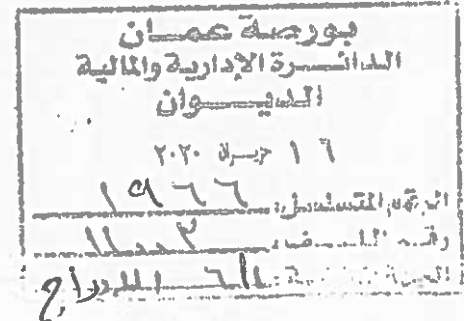 بورصة عمان
الدائرة الإدارية والمالية
الديوان
١٦ حزيران ٢٠٢٠
الرقم المتسلسل: ١٩٦٦
رقم الملف:
الجهة المختصة: